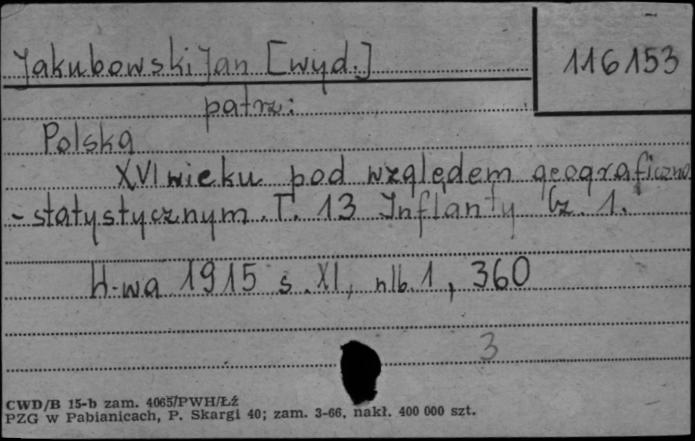 Jakubowski Jan [wyd.]
116153
patrz:
Polska
XVI wieku pod względem geograficzno
-statystycznym. T. 13 Inflanty Cz. 1.
W-wa 1915 s. XI, nlb. 1, 360
3
CWD/B 15-b zam. 4065/PWH/Łź
PZG w Pabianicach, P. Skargi 40; zam. 3-66, nakł. 400 000 szt.